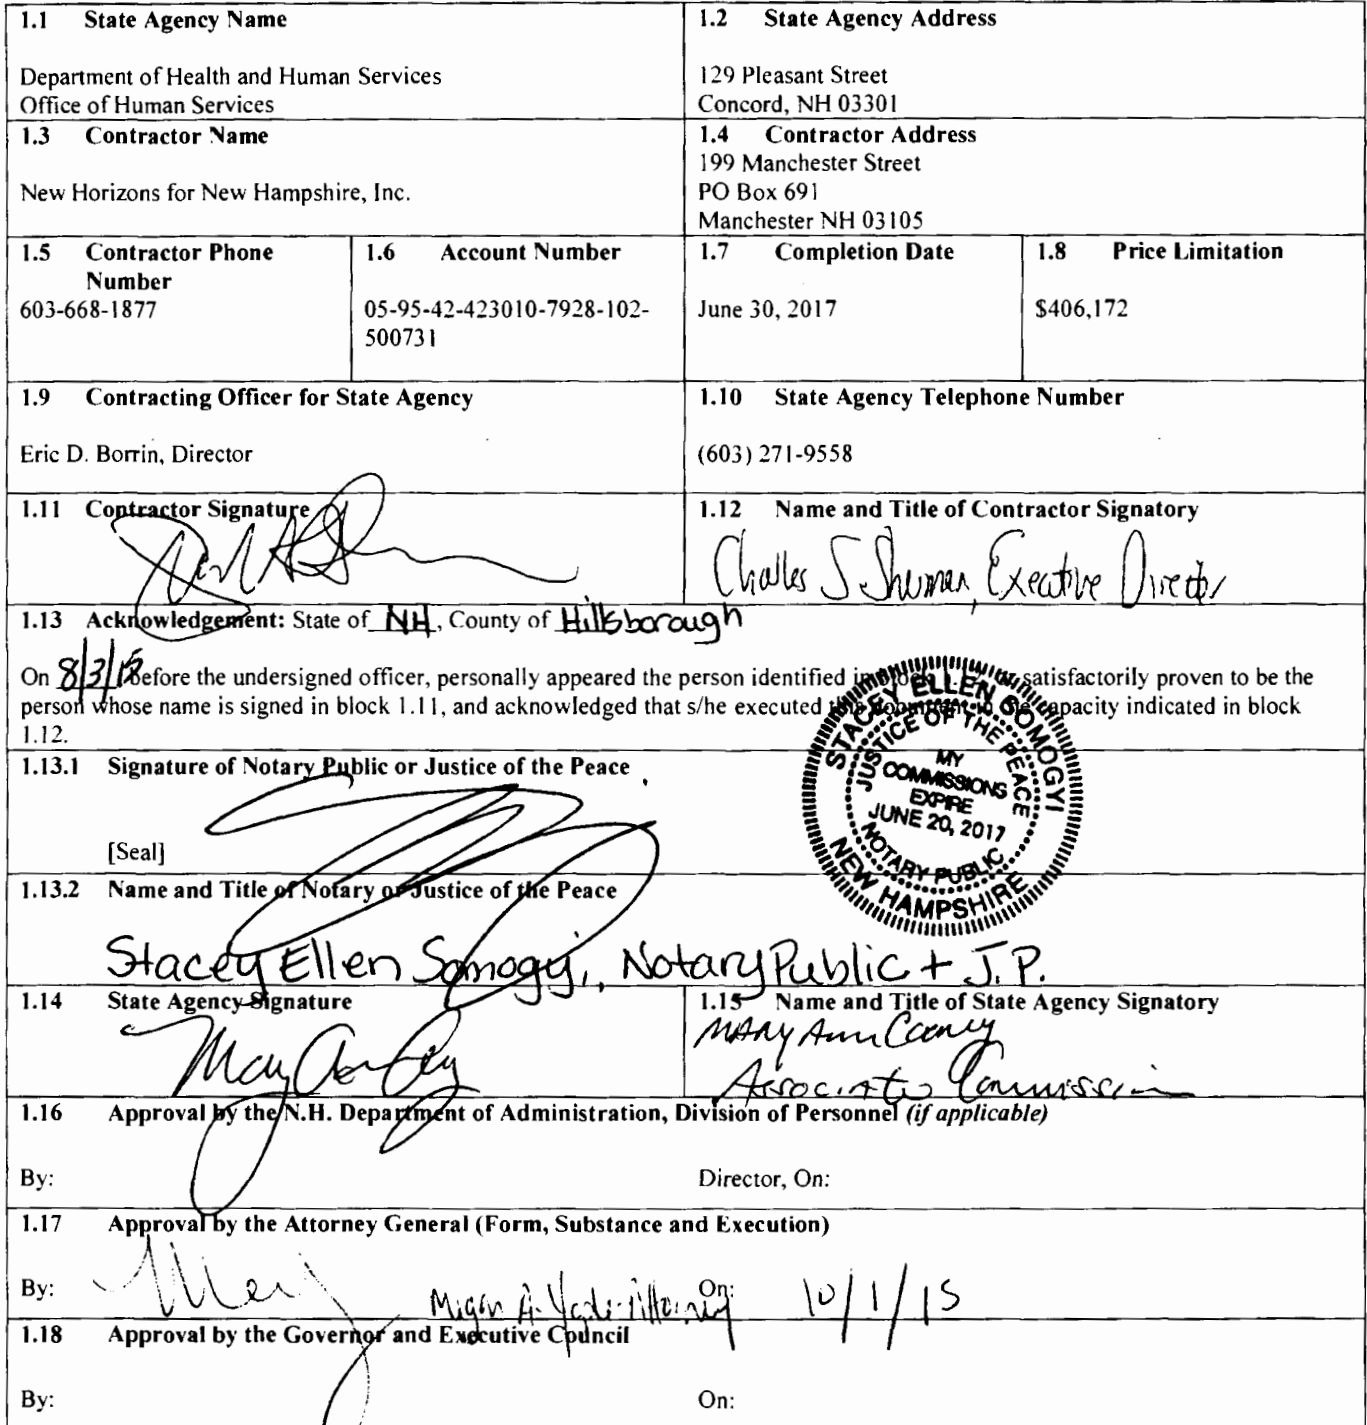 1.1 State Agency Name
Department of Health and Human Services
Office of Human Services
1.2 State Agency Address
129 Pleasant Street
Concord, NH 03301
1.3 Contractor Name
New Horizons for New Hampshire, Inc.
1.4 Contractor Address
199 Manchester Street
PO Box 691
Manchester NH 03105
1.5 Contractor Phone
Number
603-668-1877
1.6 Account Number
05-95-42-423010-7928-102-
500731
1.7 Completion Date
June 30, 2017
1.8 Price Limitation
$406,172
1.9 Contracting Officer for State Agency
Eric D. Borrin, Director
1.10 State Agency Telephone Number
(603) 271-9558
1.11 Contractor Signature
1.12 Name and Title of Contractor Signatory
Charles S. Sherman, Executive Director
1.13 Acknowledgement: State of NH, County of Hillsborough
On 8/3/15 before the undersigned officer, personally appeared the person identified in satisfactorily proven to be the
person whose name is signed in block 1.11, and acknowledged that s/he executed this document in the capacity indicated in block
1.12.
STACEY ELLEN SOMOGYI
JUSTICE OF THE PEACE
MY
COMMISSIONS
EXPIRE
JUNE 20, 2017
NOTARY PUBLIC
NEW HAMPSHIRE
1.13.1 Signature of Notary Public or Justice of the Peace
[Seal]
1.13.2 Name and Title of Notary or Justice of the Peace
Stacey Ellen Somogyi, Notary Public + J.P.
1.14 State Agency Signature
1.15 Name and Title of State Agency Signatory
Mary Ann Cooney
Associate Commissioner
1.16 Approval by the N.H. Department of Administration, Division of Personnel (if applicable)
By:
Director, On:
1.17 Approval by the Attorney General (Form, Substance and Execution)
By:
On: 10/1/15
1.18 Approval by the Governor and Executive Council
By:
On: